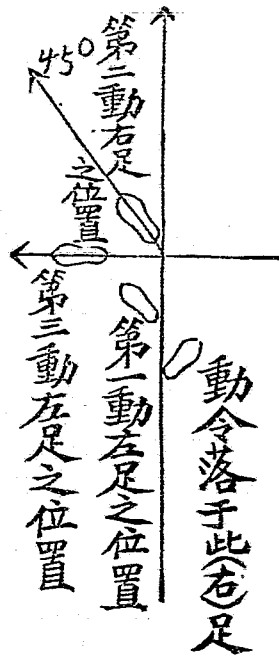 45°
第二動右足
之位置
動令落于此(右)足
第一動左足之位置
第三動左足之位置